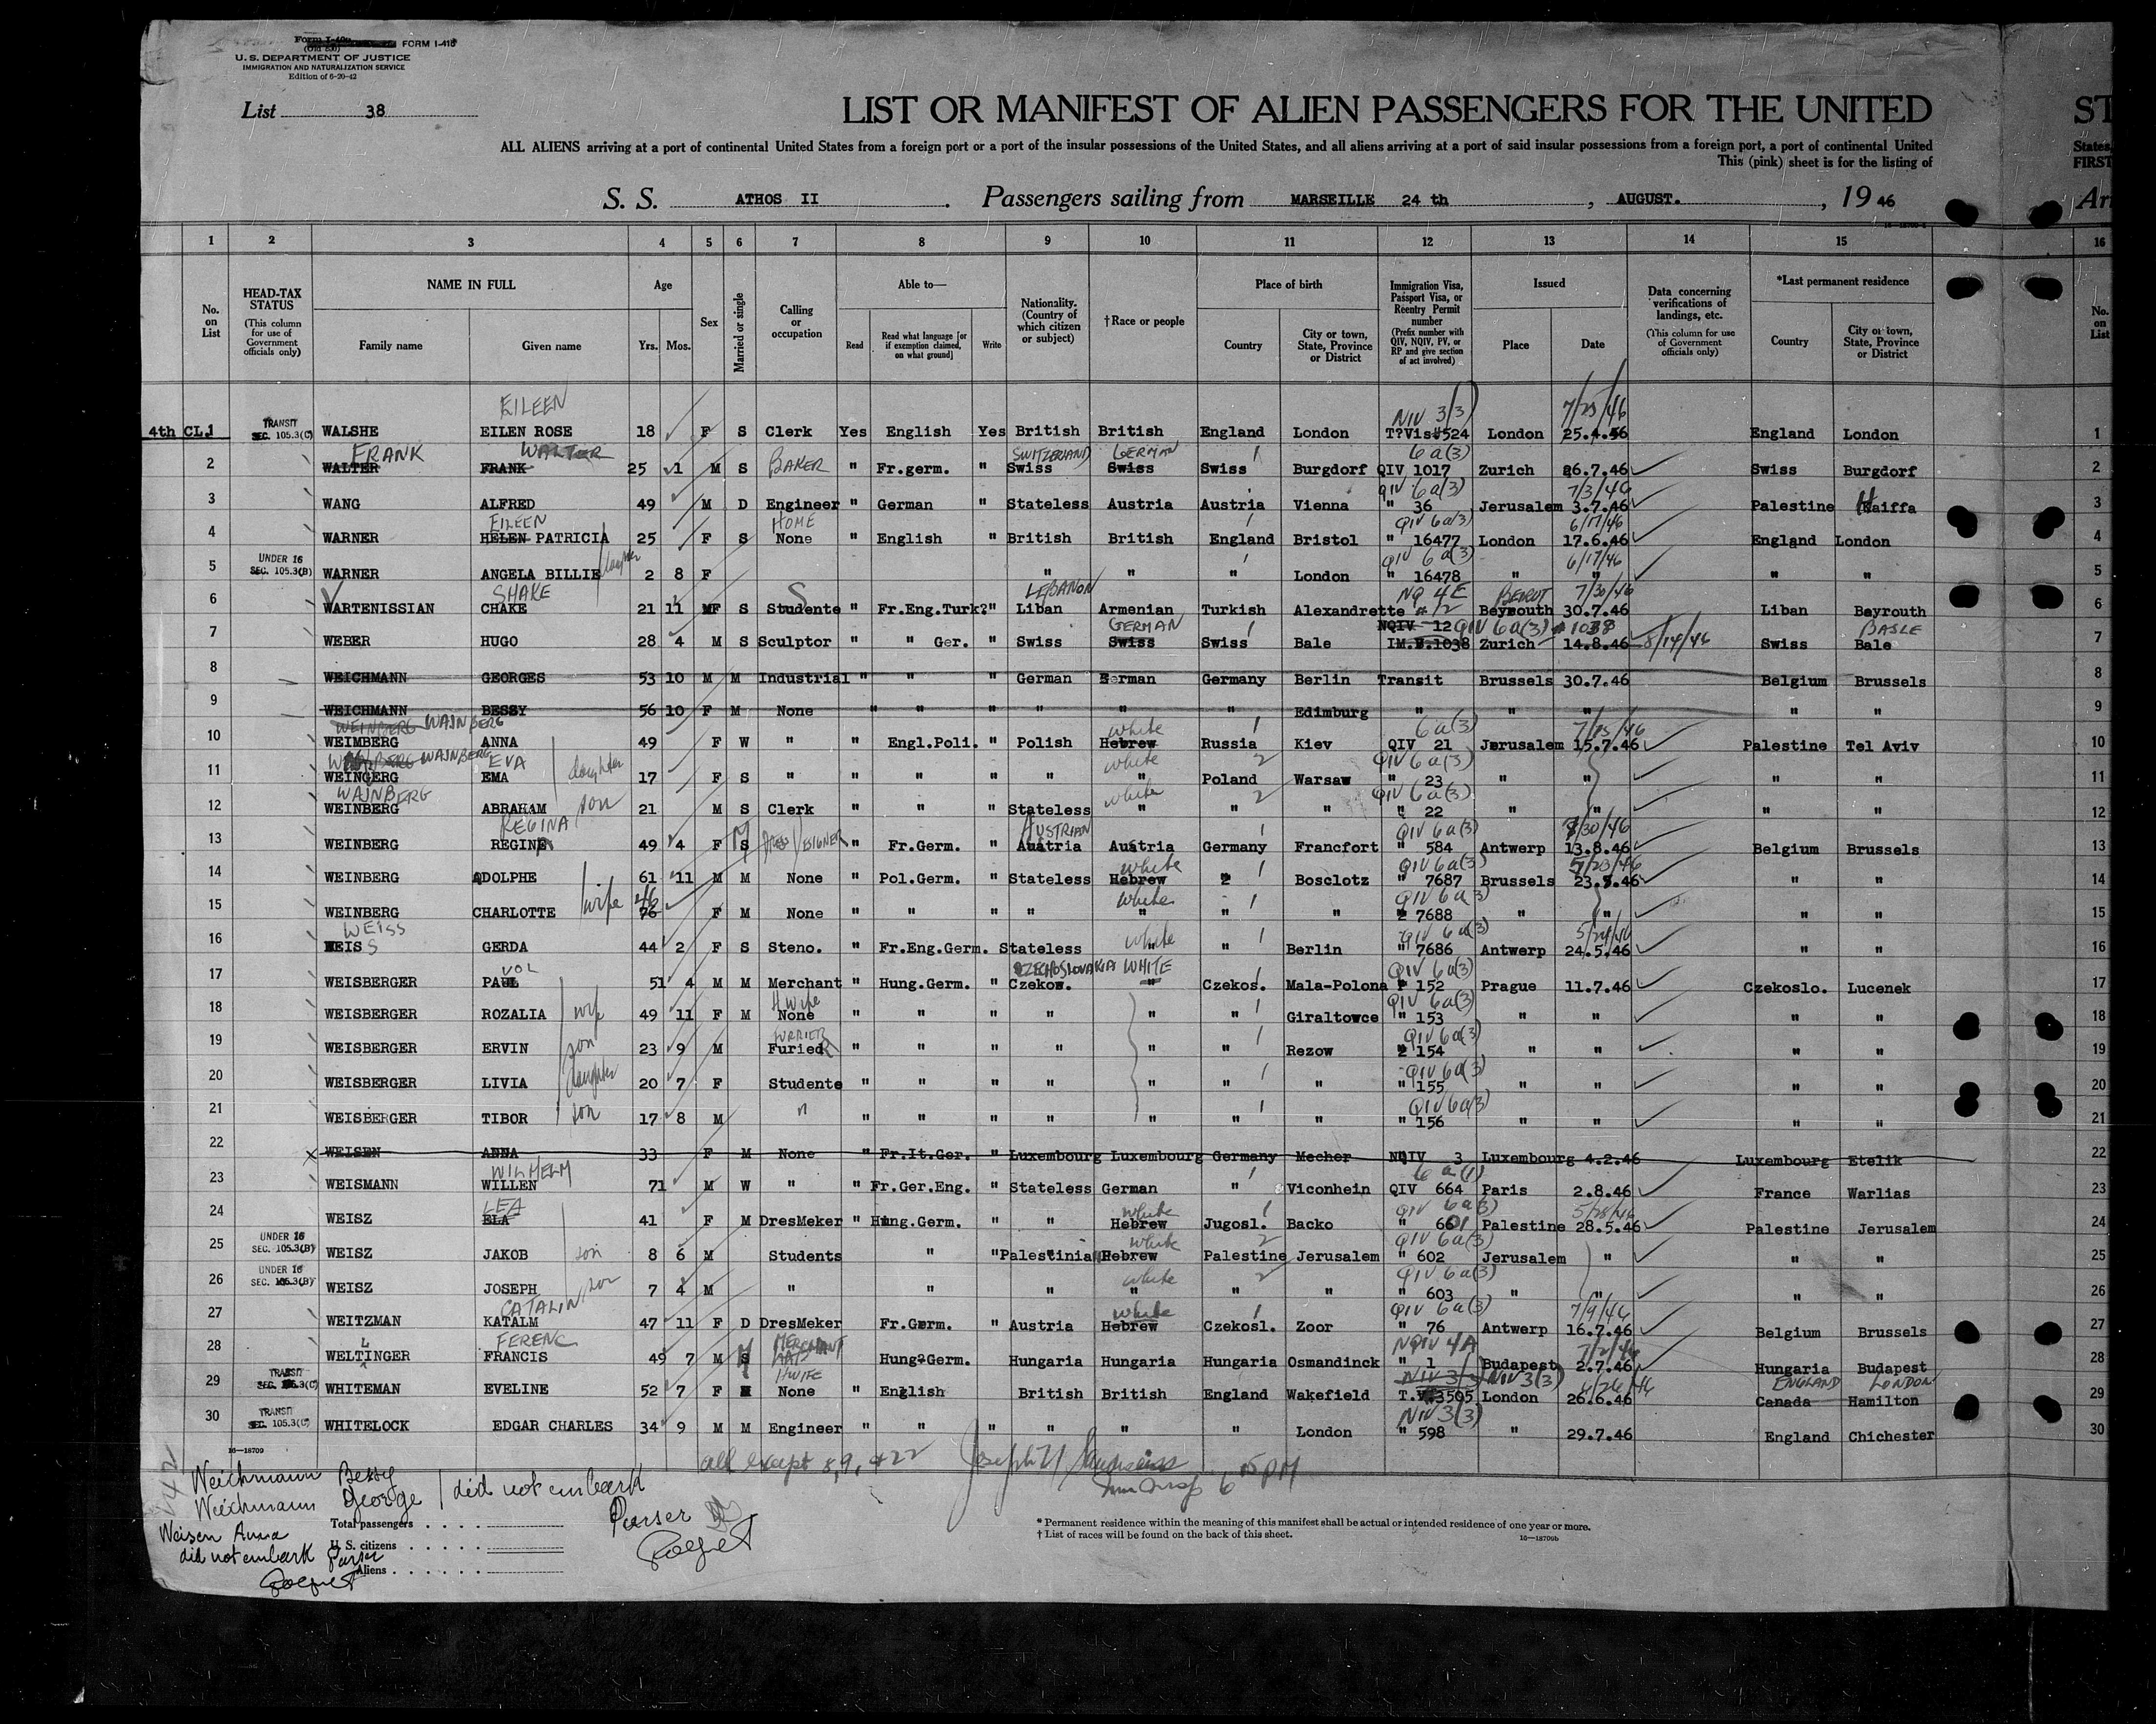 Form I-40 FORM I-418
(Old 500)
U. S. DEPARTMENT OF JUSTICE
IMMIGRATION AND NATURALIZATION SERVICE
Edition of 6-20-42
List 38
LIST OR MANIFEST OF ALIEN PASSENGERS FOR THE UNITED ST
ALL ALIENS arriving at a port of continental United States from a foreign port or a port of the insular possessions of the United States, and all aliens arriving at a port of said insular possessions from a foreign port, a port of continental United States,
This (pink) sheet is for the listing of FIRST
S. S. ATHOS II. Passengers sailing from MARSEILLE 24 th, AUGUST., 19 46 Arr
1 2 3 4 5 6 7 8 9 10 11 12 13 14 15 16
No. on List HEAD-TAX STATUS (This column for use of Government officials only) NAME IN FULL Family name Given name Age Yrs. Mos. Sex Married or single Calling or occupation Able to— Read Read what language [or if exemption claimed, on what ground] Write Nationality. (Country of which citizen or subject) †Race or people Place of birth Country City or town, State, Province or District Immigration Visa, Passport Visa, or Reentry Permit number (Prefix number with QIV, NQIV, PV, or RP and give section of act involved) Issued Place Date Data concerning verifications of landings, etc. (This column for use of Government officials only) *Last permanent residence Country City or town, State, Province or District No. on List
EILEEN NIV 3(3) 7/25/46
4th CL. 1 TRANSIT SEC. 105.3(C) WALSHE EILEN ROSE 18 F S Clerk Yes English Yes British British England London T?Vis#524 London 25.4.56 England London 1
FRANK WALTER SWITZERLAND GERMAN 6a(3)
2 WALTER FRANK 25 1 M S BAKER " Fr.germ. " Swiss Swiss Swiss Burgdorf QIV 1017 Zurich 26.7.46 Swiss Burgdorf 2
QIV 6a(3) 7/3/46
3 WANG ALFRED 49 M D Engineer " German " Stateless Austria Austria Vienna " 36 Jerusalem 3.7.46 Palestine Haiffa 3
EILEEN HOME QIV 6a(3) 6/17/46
4 WARNER HELEN PATRICIA 25 F S None " English " British British England Bristol " 16477 London 17.6.46 England London 4
QIV 6a(3) 6/17/46
5 UNDER 16 SEC. 105.3(B) WARNER ANGELA BILLIE daughter 2 8 F " " " London " 16478 " " " " 5
SHAKE LEBANON NQ 4E BEIRUT 7/30/46
6 WARTENISSIAN CHAKE 21 11 MF S Students " Fr.Eng.Turk?" Liban Armenian Turkish Alexandrette #12 Beyrouth 30.7.46 Liban Beyrouth 6
GERMAN NQIV 12 QIV 6a(3) #1038 BASLE
7 WEBER HUGO 28 4 M S Sculptor " " Ger. " Swiss Swiss Swiss Bale IM.V.1038 Zurich 14.8.46 8/14/46 Swiss Bale 7
8 WEICHMANN GEORGES 53 10 M M Industrial " " " German German Germany Berlin Transit Brussels 30.7.46 Belgium Brussels 8
9 WEICHMANN BESSY 56 10 F M None " " " " " " Edimburg " " " " " 9
WEINBERG WAJNBERG white 6a(3) 7/15/46
10 WEIMBERG ANNA 49 F W " " Engl.Poli. " Polish Hebrew Russia Kiev QIV 21 Jerusalem 15.7.46 Palestine Tel Aviv 10
WAJNBERG EVA white QIV 6a(3)
11 WEINGERG EMA daughter 17 F S " " " " " " Poland Warsaw " 23 " " " " 11
WAJNBERG white QIV 6a(3)
12 WEINBERG ABRAHAM son 21 M S Clerk " " " Stateless " " " " 22 " " " " 12
REGINA AUSTRIAN QIV 6a(3) 7/30/46
13 WEINBERG REGINA 49 4 F S M DRESS DESIGNER " Fr.Germ. " Austria Austria Germany Francfort " 584 Antwerp 13.8.46 Belgium Brussels 13
white QIV 6a(3) 5/23/46
14 WEINBERG ADOLPHE 61 11 M M None " Pol.Germ. " Stateless Hebrew " Bosclotz " 7687 Brussels 23.5.46 " " 14
46 white QIV 6a(3)
15 WEINBERG CHARLOTTE wife 76 F M None " " " " " " " " 7688 " " " " 15
WEISS white QIV 6a(3) 5/24/46
16 WEISS GERDA 44 2 F S Steno. " Fr.Eng.Germ. Stateless " " Berlin " 7686 Antwerp 24.5.46 " " 16
VOL CZECHOSLOVAKIA WHITE QIV 6a(3)
17 WEISBERGER PAUL 51 4 M M Merchant " Hung.Germ. " Czekos. " Czekos. Mala-Polona " 152 Prague 11.7.46 Czekoslo. Lucenek 17
H Wife QIV 6a(3)
18 WEISBERGER ROZALIA wife 49 11 F M None " " " " " " Giraltowce " 153 " " " " 18
FURRIER QIV 6a(3)
19 WEISBERGER ERVIN son 23 9 M Furied " " " " " " Rezow " 154 " " " " 19
QIV 6a(3)
20 WEISBERGER LIVIA daughter 20 7 F Students " " " " " " " " 155 " " " " 20
QIV 6a(3)
21 WEISBERGER TIBOR son 17 8 M " " " " " " " " " 156 " " " " 21
22 WEISEN ANNA 33 F M None " Fr.It.Ger. " Luxembourg Luxembourg Germany Mecher NQIV 3 Luxembourg 4.2.46 Luxembourg Etelik 22
WILHELM 6a(1)
23 WEISMANN WILLEN 71 M W " " Fr.Ger.Eng. " Stateless German " Viconhein QIV 664 Paris 2.8.46 France Warlias 23
LEA white QIV 6a(3) 5/28/46
24 WEISZ ELA 41 F M DresMeker " Hung.Germ. " " Hebrew Jugosl. Backo " 601 Palestine 28.5.46 Palestine Jerusalem 24
white QIV 6a(3)
25 UNDER 16 SEC. 105.3(B) WEISZ JAKOB son 8 6 M Students " " Palestinia Hebrew Palestine Jerusalem " 602 Jerusalem " " " 25
white QIV 6a(3)
26 UNDER 16 SEC. 105.3(B) WEISZ JOSEPH son 7 4 M " " " " " " " 603 " " " " 26
CATALIN white QIV 6a(3) 7/9/46
27 WEITZMAN KATALM 47 11 F D DresMeker Fr.Germ. " Austria Hebrew Czekosl. Zoor " 76 Antwerp 16.7.46 Belgium Brussels 27
L FERENC MERCHANT NQIV 4A 7/2/46
28 WELTINGER FRANCIS 49 7 M S M HATS Hung?Germ. Hungaria Hungaria Hungaria Osmandinck " 1 Budapest 2.7.46 Hungaria Budapest 28
HWIFE NIV 3(3) NIV 3(3) 6/26/46 ENGLAND LONDON
29 TRANSIT SEC. 105.3(C) WHITEMAN EVELINE 52 7 F None " English British British England Wakefield T.V#3505 London 26.6.46 Canada Hamilton 29
NIV 3(3)
30 TRANSIT SEC. 105.3(C) WHITELOCK EDGAR CHARLES 34 9 M M Engineer " " " " " " London " 598 " 29.7.46 England Chichester 30
16—18709
all except 8, 9, & 22 Joseph
6 15 PM
Weichmann Betty
Weichmann George did not embark
Purser
Weisen Anna
did not embark Purser
Total passengers
U. S. citizens
Aliens
* Permanent residence within the meaning of this manifest shall be actual or intended residence of one year or more.
† List of races will be found on the back of this sheet.
16—18709b